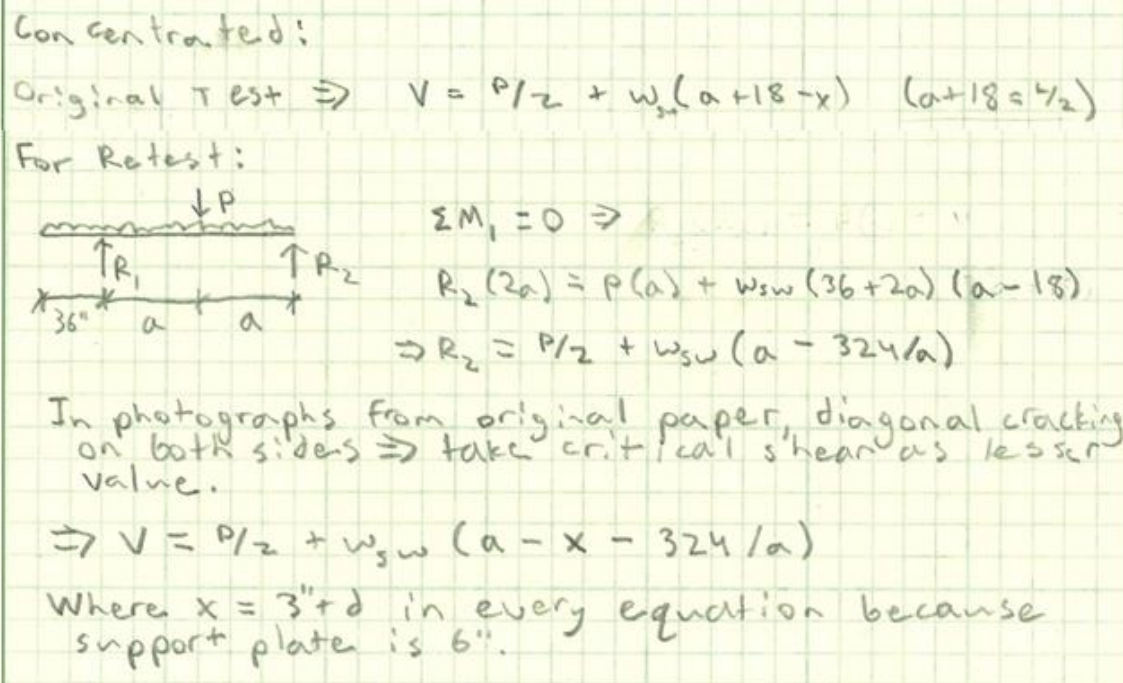 Concentrated:
Original Test ⇒ V = P/2 + w_sw(a+18-x) (a+18 = L/2)
For Retest:
↓P
ΣM₁ = 0 ⇒
↑R₁ ↑R₂
R₂(2a) = P(a) + w_sw(36+2a)(a-18)
36" a a
⇒ R₂ = P/2 + w_sw(a - 324/a)
In photographs from original paper, diagonal cracking
on both sides ⇒ take critical shear as lesser
value.
⇒ V = P/2 + w_sw(a - x - 324/a)
Where x = 3"+d in every equation because
support plate is 6".